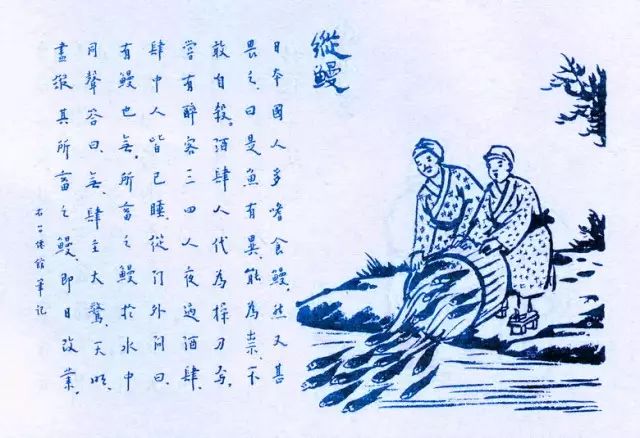 縱鰻
日本國人多嗜食鰻、然又甚
畏之、曰是魚有異、能為祟、不
敢自殺。酒肆人代為操刀焉、
嘗有醉客三四人夜過酒肆、
肆中人皆已睡、從門外問曰、
有鰻也無、所畜之鰻於水中
同聲答曰、無、肆主大驚、天明
盡縱其所畜之鰻、即日改業、
右台仙館筆記